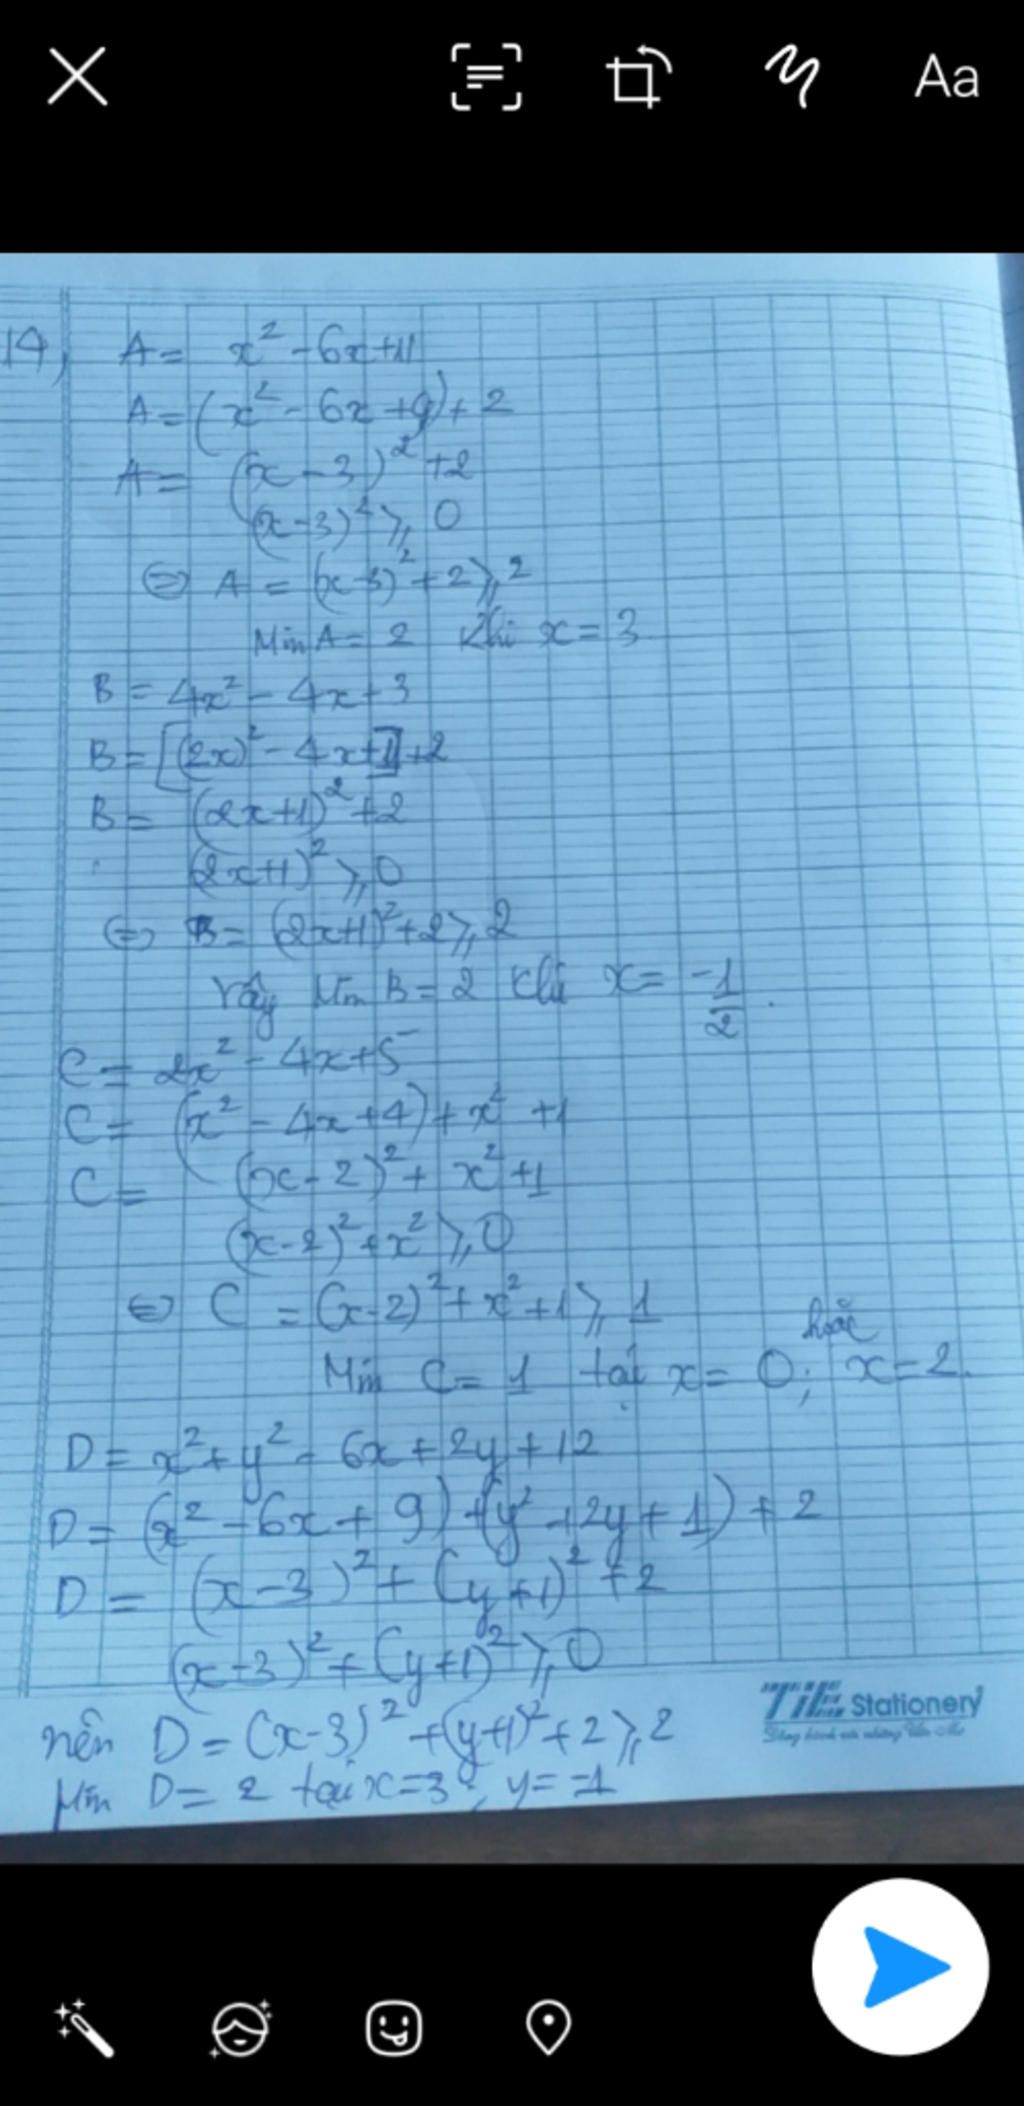 Aa
14) A = x² - 6x + 11
A = (x² - 6x + 9) + 2
A = (x - 3)² + 2
(x - 3)² ⩾ 0
⇔ A = (x - 3)² + 2 ⩾ 2
Min A = 2 Khi x = 3
B = 4x² - 4x + 3
B = [(2x)² - 4x + 1] + 2
B = (2x + 1)² + 2
(2x + 1)² ⩾ 0
⇔ B = (2x + 1)² + 2 ⩾ 2
Vậy Min B = 2 khi x = -1/2.
C = 2x² - 4x + 5
C = (x² - 4x + 4) + x² + 1
C = (x - 2)² + x² + 1
(x - 2)² + x² ⩾ 0
⇔ C = (x - 2)² + x² + 1 ⩾ 1
Min C = 1 tại x = 0; hoặc x = 2.
D = x² + y² - 6x + 2y + 12
D = (x² - 6x + 9) + (y² + 2y + 1) + 2
D = (x - 3)² + (y + 1)² + 2
(x - 3)² + (y + 1)² ⩾ 0
nên D = (x - 3)² + (y + 1)² + 2 ⩾ 2
Min D = 2 tại x = 3; y = -1
Stationery